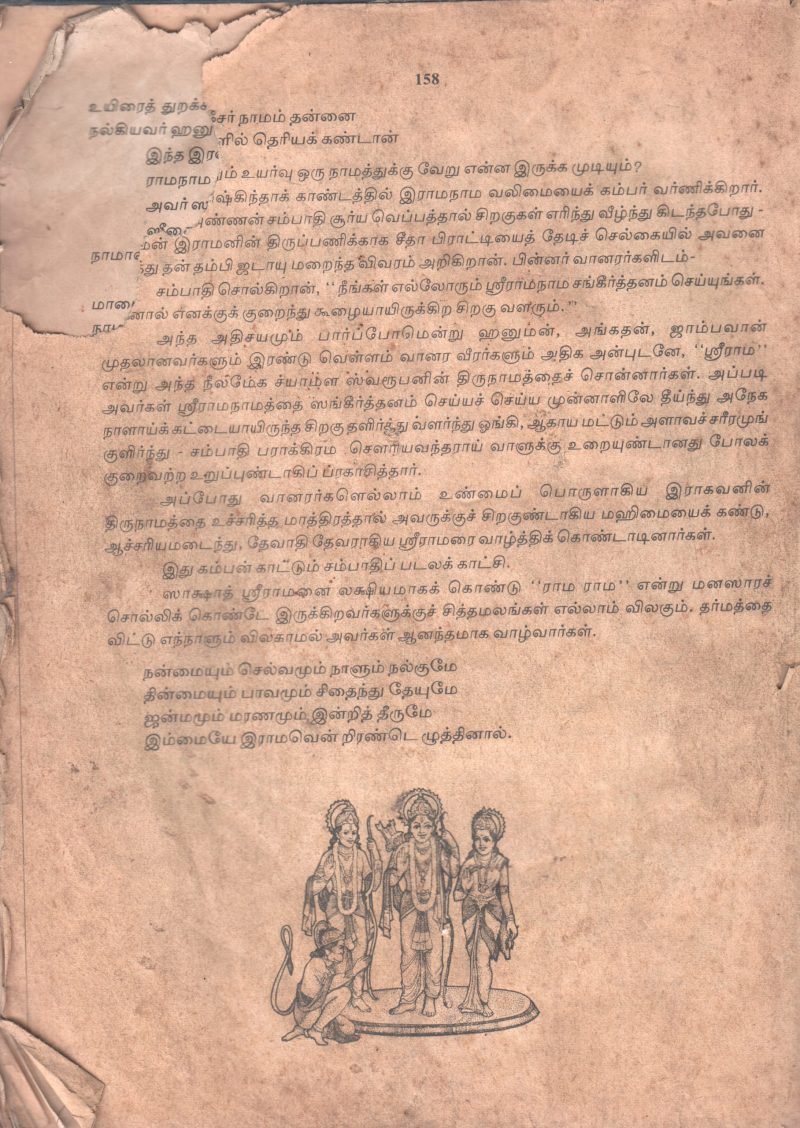 158
உயிரைத் துறக்க
சர் நாமம் தன்னை
நல்கியவர் ஹனு
ளில் தெரியக் கண்டான்
இந்த இர
ராமநாம
ம் உயர்வு ஒரு நாமத்துக்கு வேறு என்ன இருக்க முடியும்?
அவர் ஸ
ஷ்கிந்தாக் காண்டத்தில் இராமநாம வலிமையைக் கம்பர் வர்ணிக்கிறார்.
அண்ணன் சம்பாதி சூர்ய வெப்பத்தால் சிறகுகள் எரிந்து வீழ்ந்து கிடந்தபோது -
நாமா
மன் இராமனின் திருப்பணிக்காக சீதா பிராட்டியைத் தேடிச் செல்கையில் அவனை
து தன் தம்பி ஜடாயு மறைந்த விவரம் அறிகிறான். பின்னர் வானரர்களிடம்-
சம்பாதி சொல்கிறான், "நீங்கள் எல்லோரும் ஸ்ரீராமநாம சங்கீர்த்தனம் செய்யுங்கள்.
மானை
னால் எனக்குக் குறைந்து கூழையாயிருக்கிற சிறகு வளரும்."
நாம
அந்த அதிசயமும் பார்ப்போமென்று ஹனுமன், அங்கதன், ஜாம்பவான்
முதலானவர்களும் இரண்டு வெள்ளம் வானர வீரர்களும் அதிக அன்புடனே, "ஸ்ரீராம"
என்று அந்த நீலமேக ச்யாமள ஸ்வரூபனின் திருநாமத்தைச் சொன்னார்கள். அப்படி
அவர்கள் ஸ்ரீராமநாமத்தை ஸங்கீர்த்தனம் செய்யச் செய்ய முன்னாளிலே தீய்ந்து அநேக
நாளாய்க்கட்டையாயிருந்த சிறகு தளிர்த்து வளர்ந்து ஓங்கி, ஆகாய மட்டும் அளாவச்சரீரமுங்
குளிர்ந்து - சம்பாதி பராக்கிரம சௌரியவந்தராய் வாளுக்கு உறையுண்டானது போலக்
குறைவற்ற உறுப்புண்டாகிப் ப்ரகாசித்தார்.
அப்போது வானரர்களெல்லாம் உண்மைப் பொருளாகிய இராகவனின்
திருநாமத்தை உச்சரித்த மாத்திரத்தால் அவருக்குச் சிறகுண்டாகிய மஹிமையைக் கண்டு,
ஆச்சரியமடைந்து, தேவாதி தேவராகிய ஸ்ரீராமரை வாழ்த்திக் கொண்டாடினார்கள்.
இது கம்பன் காட்டும் சம்பாதிப் படலக் காட்சி.
ஸாக்ஷாத் ஸ்ரீராமனை லக்ஷியமாகக் கொண்டு "ராம ராம" என்று மனஸாரச்
சொல்லிக் கொண்டே இருக்கிறவர்களுக்குச் சித்தமலங்கள் எல்லாம் விலகும். தர்மத்தை
விட்டு எந்நாளும் விலகாமல் அவர்கள் ஆனந்தமாக வாழ்வார்கள்.
நன்மையும் செல்வமும் நாளும் நல்குமே
தின்மையும் பாவமும் சிதைந்து தேயுமே
ஜன்மமும் மரணமும் இன்றித் தீருமே
இம்மையே இராமவென் றிரண்டெ ழுத்தினால்.